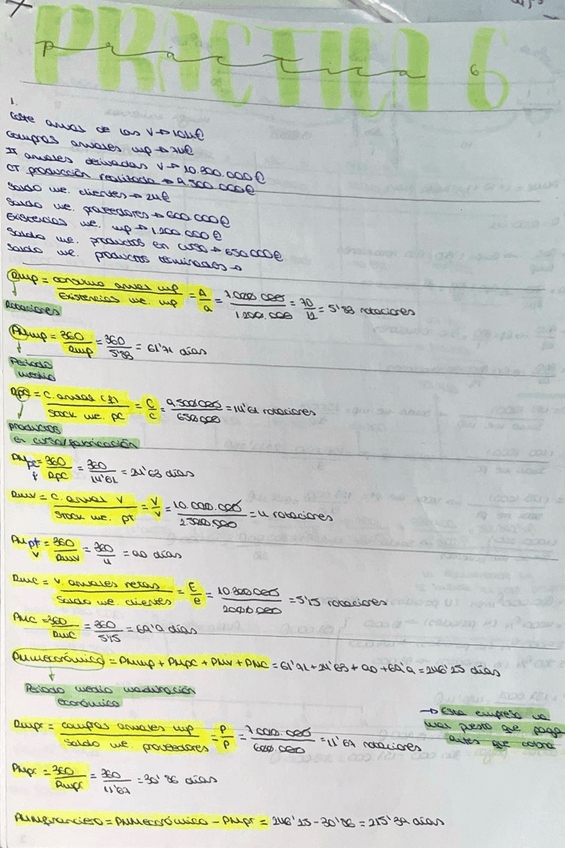 PRACTICA 6
práctica 6
1.
Coste anual de las V → 10M€
Compras anuales mp → 7M€
II anuales derivadas V → 10.300.000€
CT producción realizada → 9.500.000€
Saldo me. clientes → 2M€
Saldo me. proveedores → 600.000€
Existencias me. mp → 1.200.000€
Saldo me. productos en curso → 650.000€
Saldo me. productos terminados →
Rmp = consumo anual mp / Existencias me. mp = A/a = 7.000.000/1.200.000 = 70/12 = 5'83 rotaciones
Rotaciones
PMmp = 360/Rmp = 360/5'83 = 61'71 días
Periodo medio
Rpc = C. anual (f) / Stock me. pc = C/c = 9.500.000/650.000 = 14'61 rotaciones
productos en curso/fabricación
PMpc f = 360/Rpc = 360/14'61 = 24'63 días
Rmv = C. anual V / Stock me. pt = V/v = 10.000.000/2.500.000 = 4 rotaciones
PMpt v = 360/Rmv = 360/4 = 90 días
Rmc = V. anuales netas / Saldo me. clientes = E/e = 10.300.000/2.000.000 = 5'15 rotaciones
PMC = 360/Rmc = 360/5'15 = 69'9 días
PMMeconómico = PMmp + PMpc + PMv + PMC = 61'71 + 24'63 + 90 + 69'9 = 246'25 días
Periodo medio maduración económico
→ Esta empresa va mal puesto que paga antes que cobra
Rmpr = compras anuales mp / Saldo me. proveedores = P/p = 7.000.000/600.000 = 11'67 rotaciones
PMpr = 360/Rmpr = 360/11'67 = 30'86 días
PMMfinanciero = PMMeconómico - PMpr = 246'25 - 30'86 = 215'39 días